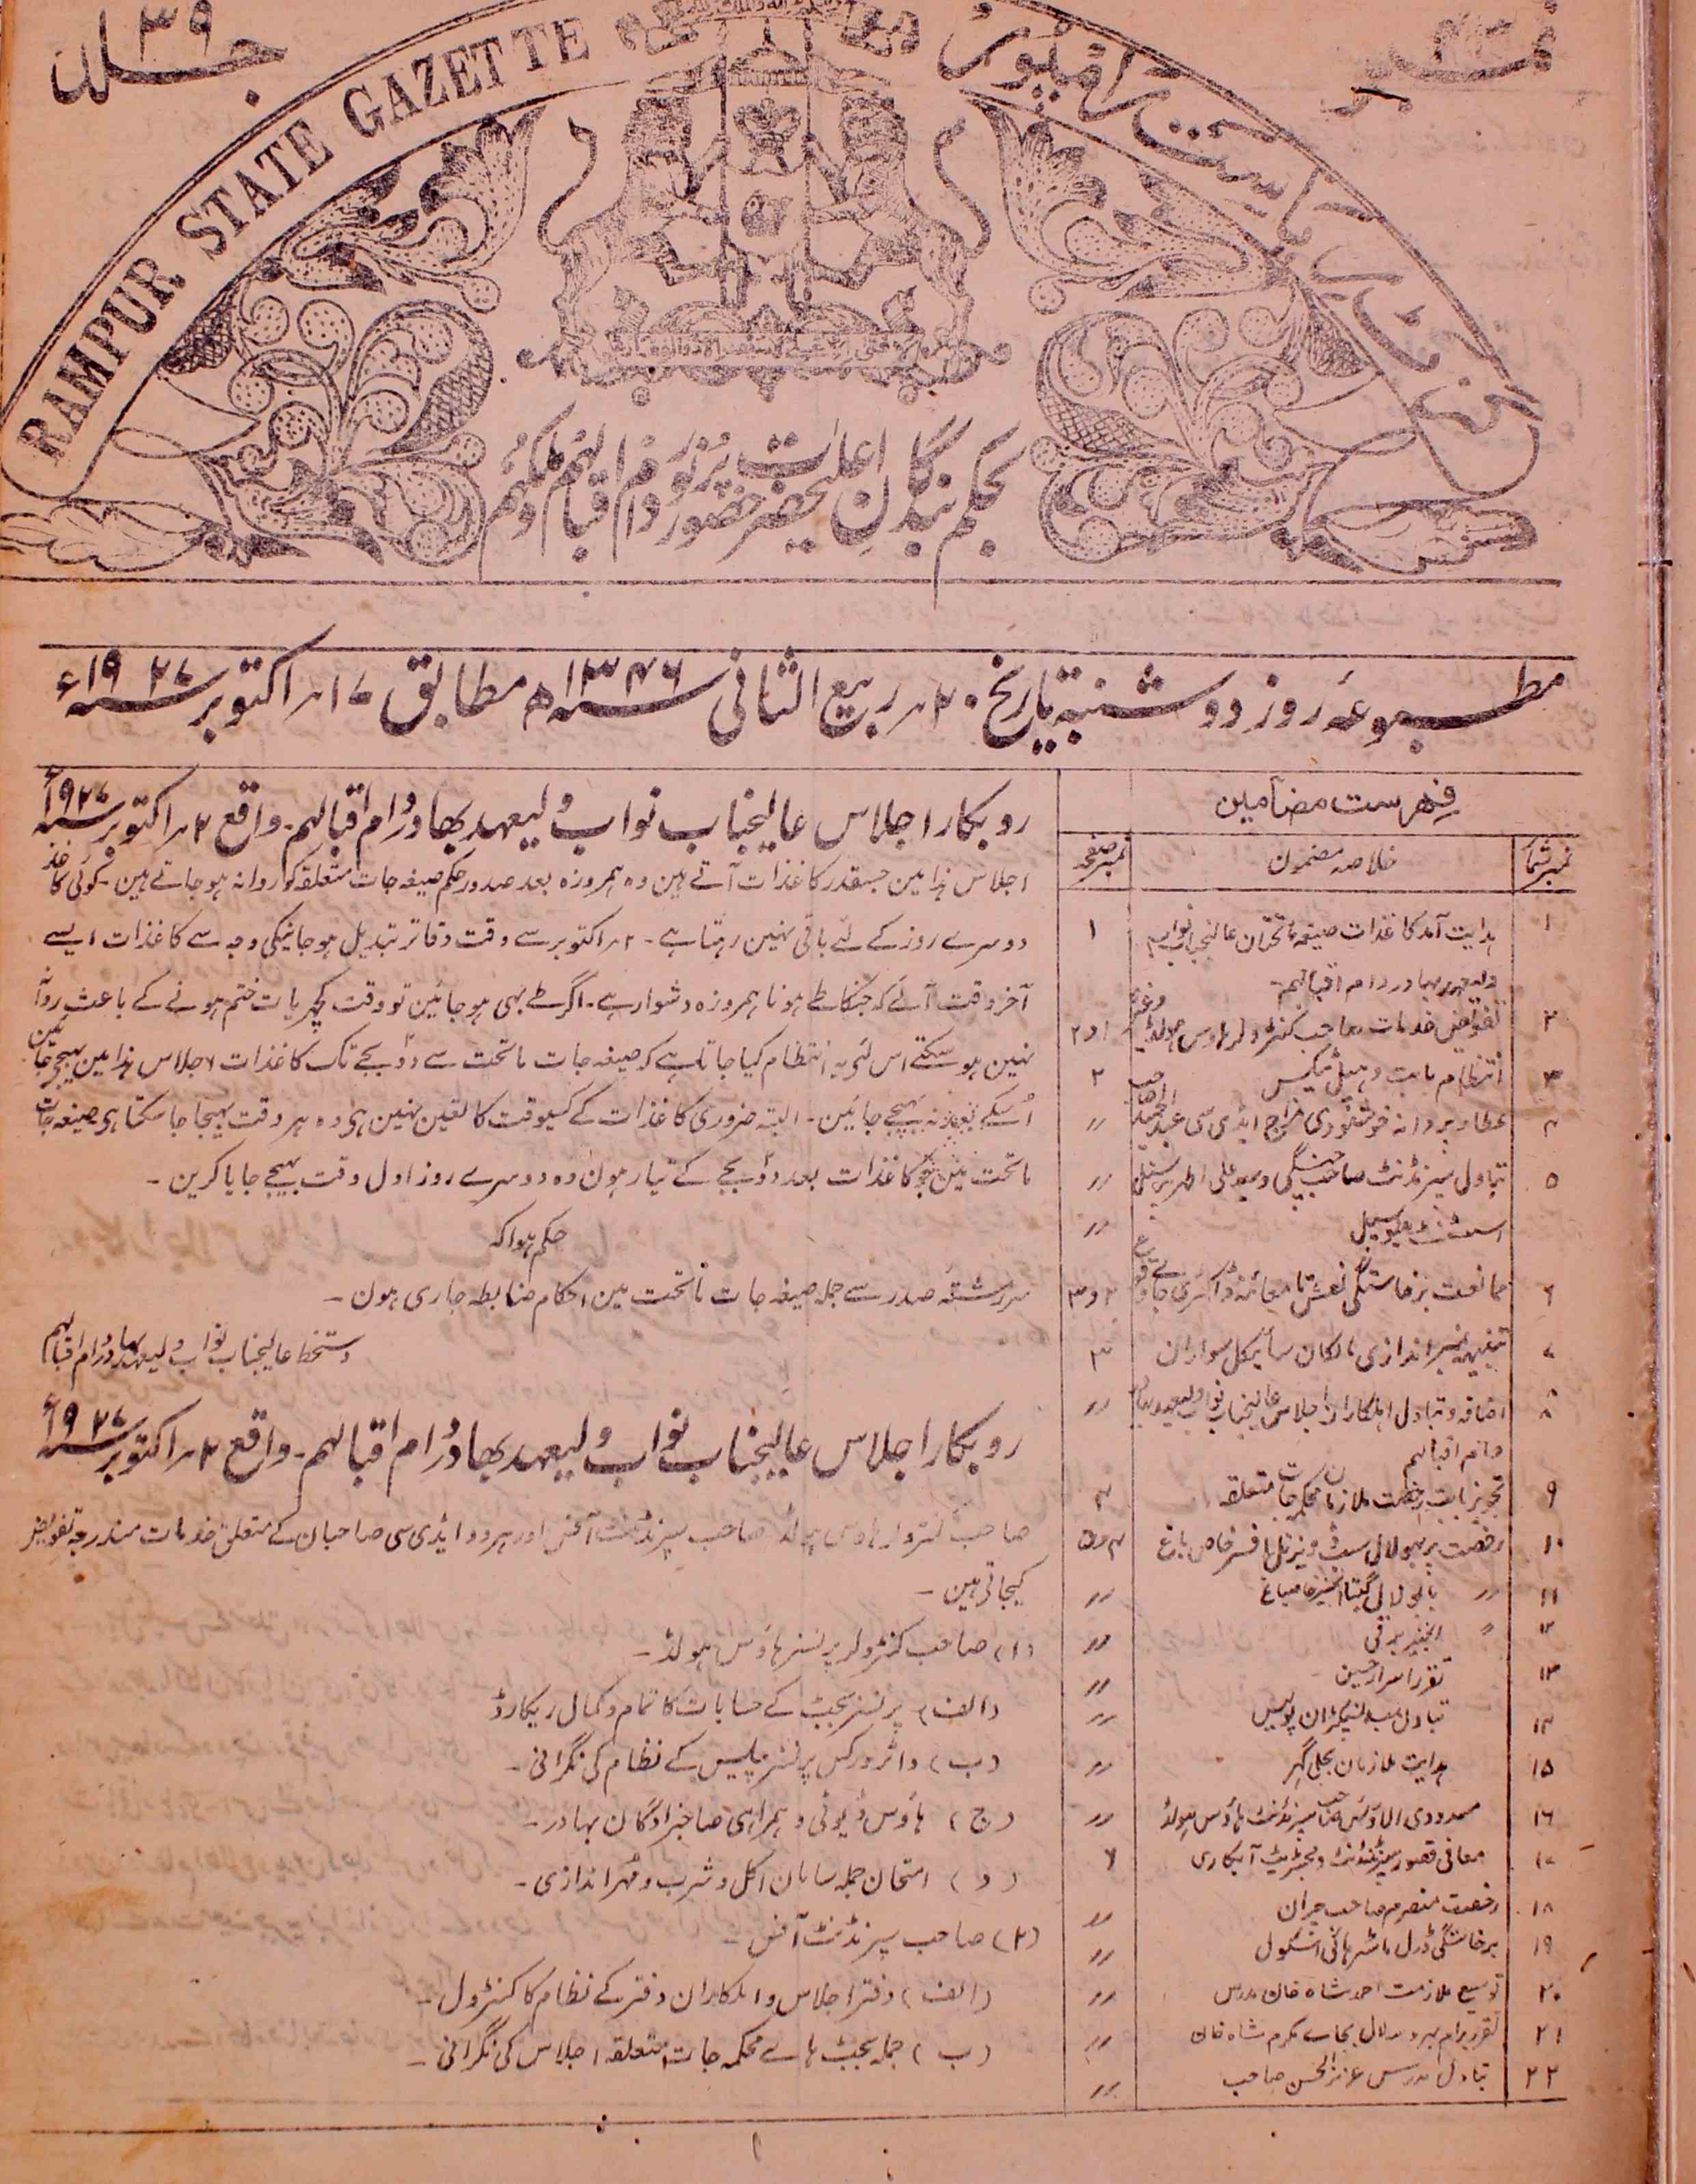 جلد ۳۹
نمبر
RAMPUR STATE GAZETTE
ریاست رامپور
گزٹ
بحکم بندگان اعلیحضرت حضور پرنور دام اقبالہم و ملکہم
مطبوعہ روز دوشنبہ تاریخ ۲۰؍ ربیع الثانی سنہ ۱۳۴۶ھ مطابق ۱۷؍ اکتوبر سنہ ۱۹۲۷ء
فہرست مضامین
نمبر شمار خلاصہ مضمون نمبر صفحہ
۱ ہدایت آمد کاغذات صیغہ ماتحتان عالیجناب نواب ۱
ولیعہد بہادر دام اقبالہم
۲ تفویض خدمات صاحب کنٹرولر ہاوس ہولڈ وغیرہ ۱و۲
۳ انتظام بابت وہیل ٹیکس ۲
۴ عطاء پروانہ خوشنودی مزاج ایڈی سی عبدالحمید //
۵ تبادل سپرنڈنٹ صاحب //
اسسٹنٹ //
۶ ممانعت برخاستگی نعش تا معائنہ ڈاکٹری ۲و۳
۷ تنبیہہ نمبر اندازی مالکان سائیکل سواران ۳
۸ اضافہ و تبادل اہلکاران اجلاس عالیجناب نواب ولیعہد بہادر //
دام اقبالہم
۹ تجویز بابت رخصت ملازمان محکمہ جات متعلقہ ۴
۱۰ رخصت افسر خاص باغ ۴و۵
۱۱ // بابولال گپتا //
۱۲ // انجنیر برقی //
۱۳ تقرر اسرار حسین //
۱۴ تبادل سب انسپکٹران پولیس //
۱۵ ہدایت ملازمان بجلی گہر //
۱۶ مسدودی الاؤنس صاحب سپرنڈنٹ ہاؤس ہولڈ //
۱۷ معافی قصور سپرنٹنڈنٹ آبکاری ۶
۱۸ رخصت منصرم صاحب //
۱۹ برخاستگی ڈرل ماسٹر ہائی اسکول //
۲۰ توسیع ملازمت احمد شاہ خان مدرس //
۲۱ تقرر رام بجاے مکرم شاہ خان //
۲۲ تبادل مدرس عزیز الحسن صاحب //
روبکار اجلاس عالیجناب نواب ولیعہد بہادر دام اقبالہم۔ واقع ۲؍ اکتوبر سنہ ۱۹۲۷ء
اجلاس ہذا مین جسقدر کاغذات آتے ہین وہ ہمروزہ بعد صدور حکم صیغہ جات متعلقہ کو روانہ ہو جاتے ہین۔ کوئی کاغذ
دوسرے روز کے لئے باقی نہین رہتا ہے۔ ۲؍ اکتوبر سے وقت دفاتر تبدیل ہو جانیکی وجہ سے کاغذات ایسے
آخر وقت آئے کہ جنکا طے ہونا ہمروزہ دشوار ہے۔ اگر طے بہی ہو جائین تو وقت کچہریات ختم ہونے کے باعث روانہ
نہین ہو سکتے اس لئے یہ انتظام کیا جاتا ہے کہ صیغہ جات ماتحت سے دو بجے تک کاغذات اجلاس ہذا مین بہیجے جائین
اُسکے بعد نہ بہیجے جائین۔ البتہ ضروری کاغذات کے کسیوقت کا تعین نہین ہی وہ ہر وقت بہیجا جا سکتا ہی صیغہ جات
ماتحت مین جو کاغذات بعد دو بجے کے تیار ہون وہ دوسرے روز اول وقت بہیجے جایا کرین۔
حکم ہوا کہ
سررشتہ صدر سے جملہ صیغہ جات ماتحت مین احکام ضابطہ جاری ہون۔
دستخط عالیجناب نواب ولیعہد بہادر دام اقبالہم
روبکار اجلاس عالیجناب نواب ولیعہد بہادر دام اقبالہم۔ واقع ۲؍ اکتوبر سنہ ۱۹۲۷ء
صاحب کنٹرولر ہاوس ہولڈ صاحب سپرنڈنٹ آفس اور ہر دو ایڈی سی صاحبان کے متعلق خدمات مندرجہ تفویض
کیجاتی ہین۔
(۱) صاحب کنٹرولر پرنسز ہاؤس ہولڈ۔
(الف) پرنسز بجٹ کے حسابات کا تمام و کمال ریکارڈ
(ب) واٹر ورکس پرنسز پلیس کے نظام کی نگرانی۔
(ج) ہاؤس ڈیوٹی و ہمراہی صاحبزادگان بہادر۔
(د) امتحان جملہ سامان اکل و شرب و مُہر اندازی۔
(۲) صاحب سپرنڈنٹ آفس۔
(الف) دفتر اجلاس و اہلکاران دفتر کے نظام کا کنٹرول۔
(ب) جملہ بجٹ ہاے محکمہ جات متعلقہ اجلاس کی نگرانی۔
۱